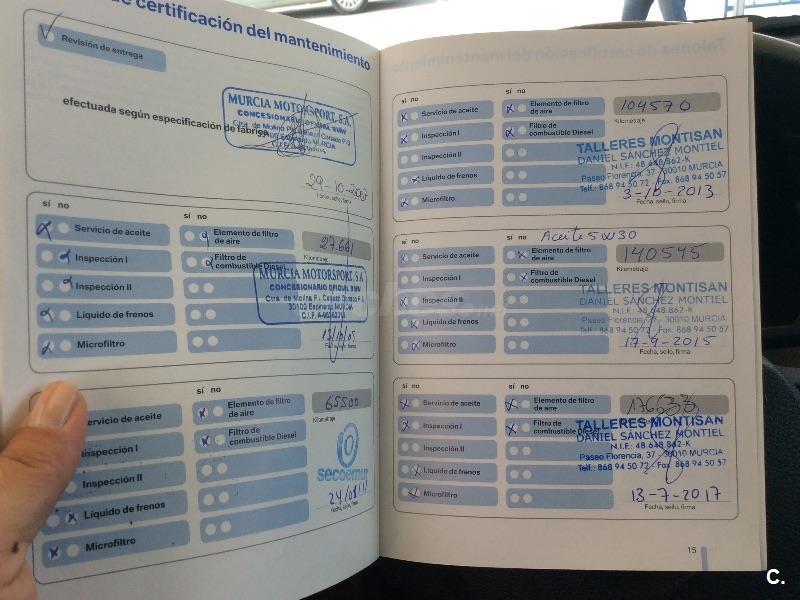 de certificación del mantenimiento
Revisión de entrega
efectuada según especificación de fábrica
MURCIA MOTORSPORT, S.A.
CONCESIONARIO OFICIAL BMW
sí no
Servicio de aceite
Inspección I
Inspección II
Líquido de frenos
Microfiltro
sí no
Elemento de filtro
de aire
Filtro de
combustible Diesel
27.661
Kilometraje
MURCIA MOTORSPORT S.A
CONCESIONARIO OFICIAL BMW
30100 Espinardo MURCIA
Fecha, sello, firma
sí no
Servicio de aceite
Inspección I
Inspección II
Líquido de frenos
Microfiltro
sí no
Elemento de filtro
de aire
Filtro de
combustible Diesel
65500
Kilometraje
secoemur
Fecha, sello, firma
sí no
Servicio de aceite
Inspección I
Inspección II
Líquido de frenos
Microfiltro
sí no
Elemento de filtro
de aire
Filtro de
combustible Diesel
104570
Kilometraje
TALLERES MONTISAN
DANIEL SÁNCHEZ MONTIEL
N.I.F.: 48.648.862-K
Paseo Florencia, 37 - 30010 MURCIA
Telf.: 868 94 50 72 - Fax. 868 94 50 57
3-10-2013
Fecha, sello, firma
sí no
Aceite 5W30
Servicio de aceite
Inspección I
Inspección II
Líquido de frenos
Microfiltro
Elemento de filtro
de aire
Filtro de
combustible Diesel
140545
Kilometraje
TALLERES MONTISAN
DANIEL SÁNCHEZ MONTIEL
N.I.F.: 48.648.862-K
Paseo Florencia, 37 - 30010 MURCIA
Telf.: 868 94 50 72 - Fax. 868 94 50 57
17-9-2015
Fecha, sello, firma
sí no
Servicio de aceite
Inspección I
Inspección II
Líquido de frenos
Microfiltro
sí no
Elemento de filtro
de aire
Filtro de
combustible Diesel
Kilometraje
TALLERES MONTISAN
DANIEL SÁNCHEZ MONTIEL
N.I.F.: 48.648.862-K
Paseo Florencia, 37 - 30010 MURCIA
Telf.: 868 94 50 72 - Fax. 868 94 50 57
13-7-2017
Fecha, sello, firma
15
C.